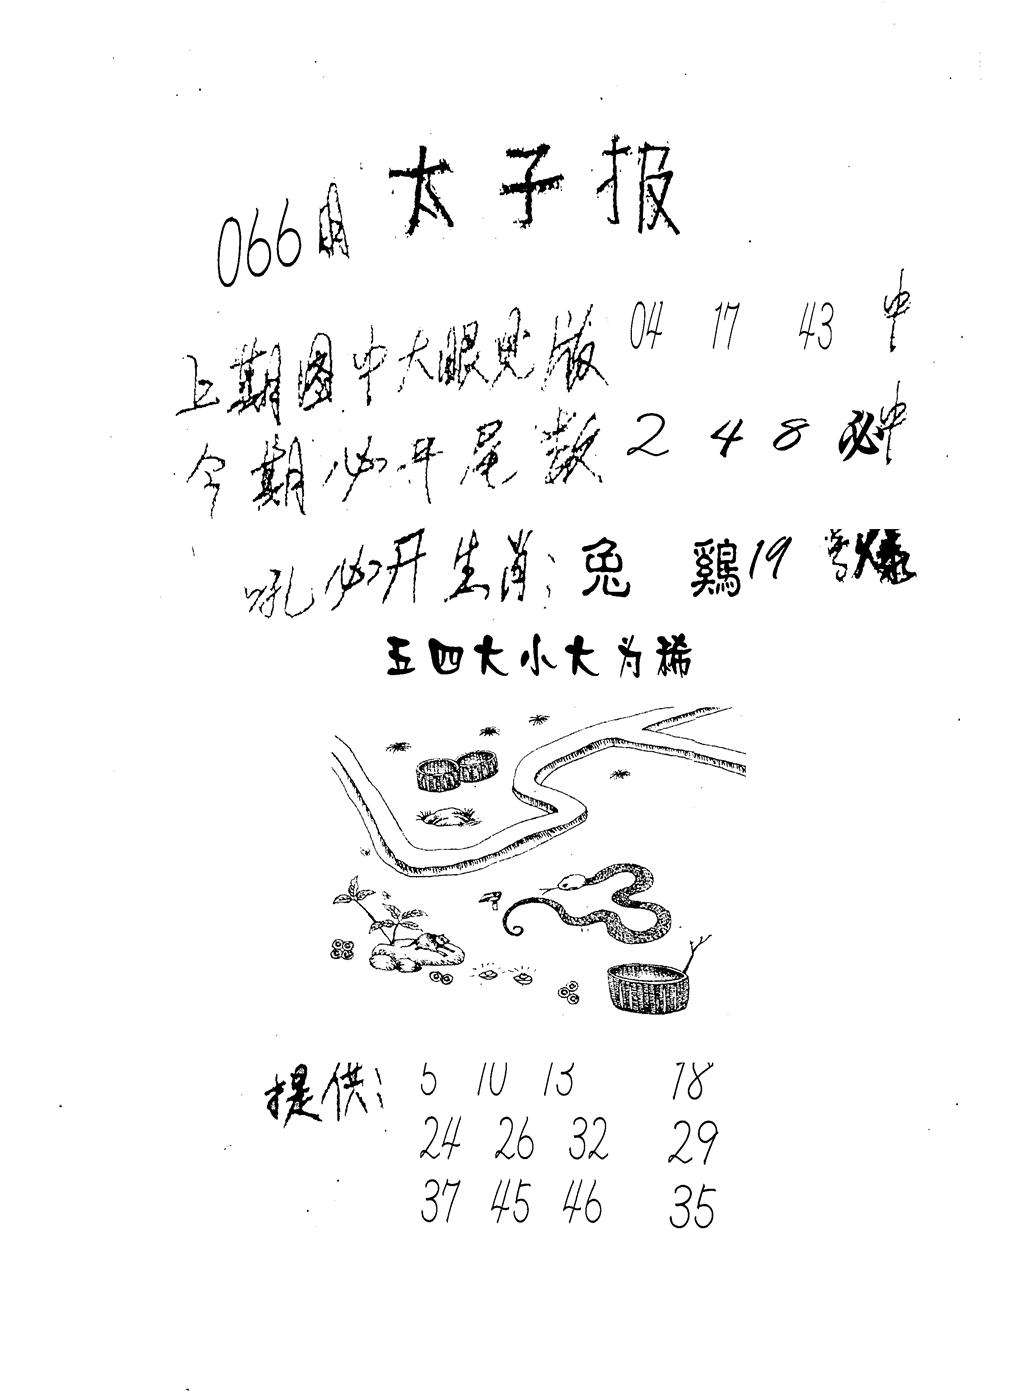 太子报
066期
上期图中大眼见版 04 17 43 中
今期必开尾数 2 4 8 必中
吼必开生肖: 兔 鷄 19 爆
五四大小大为稀
提供: 5 10 13 18
24 26 32 29
37 45 46 35